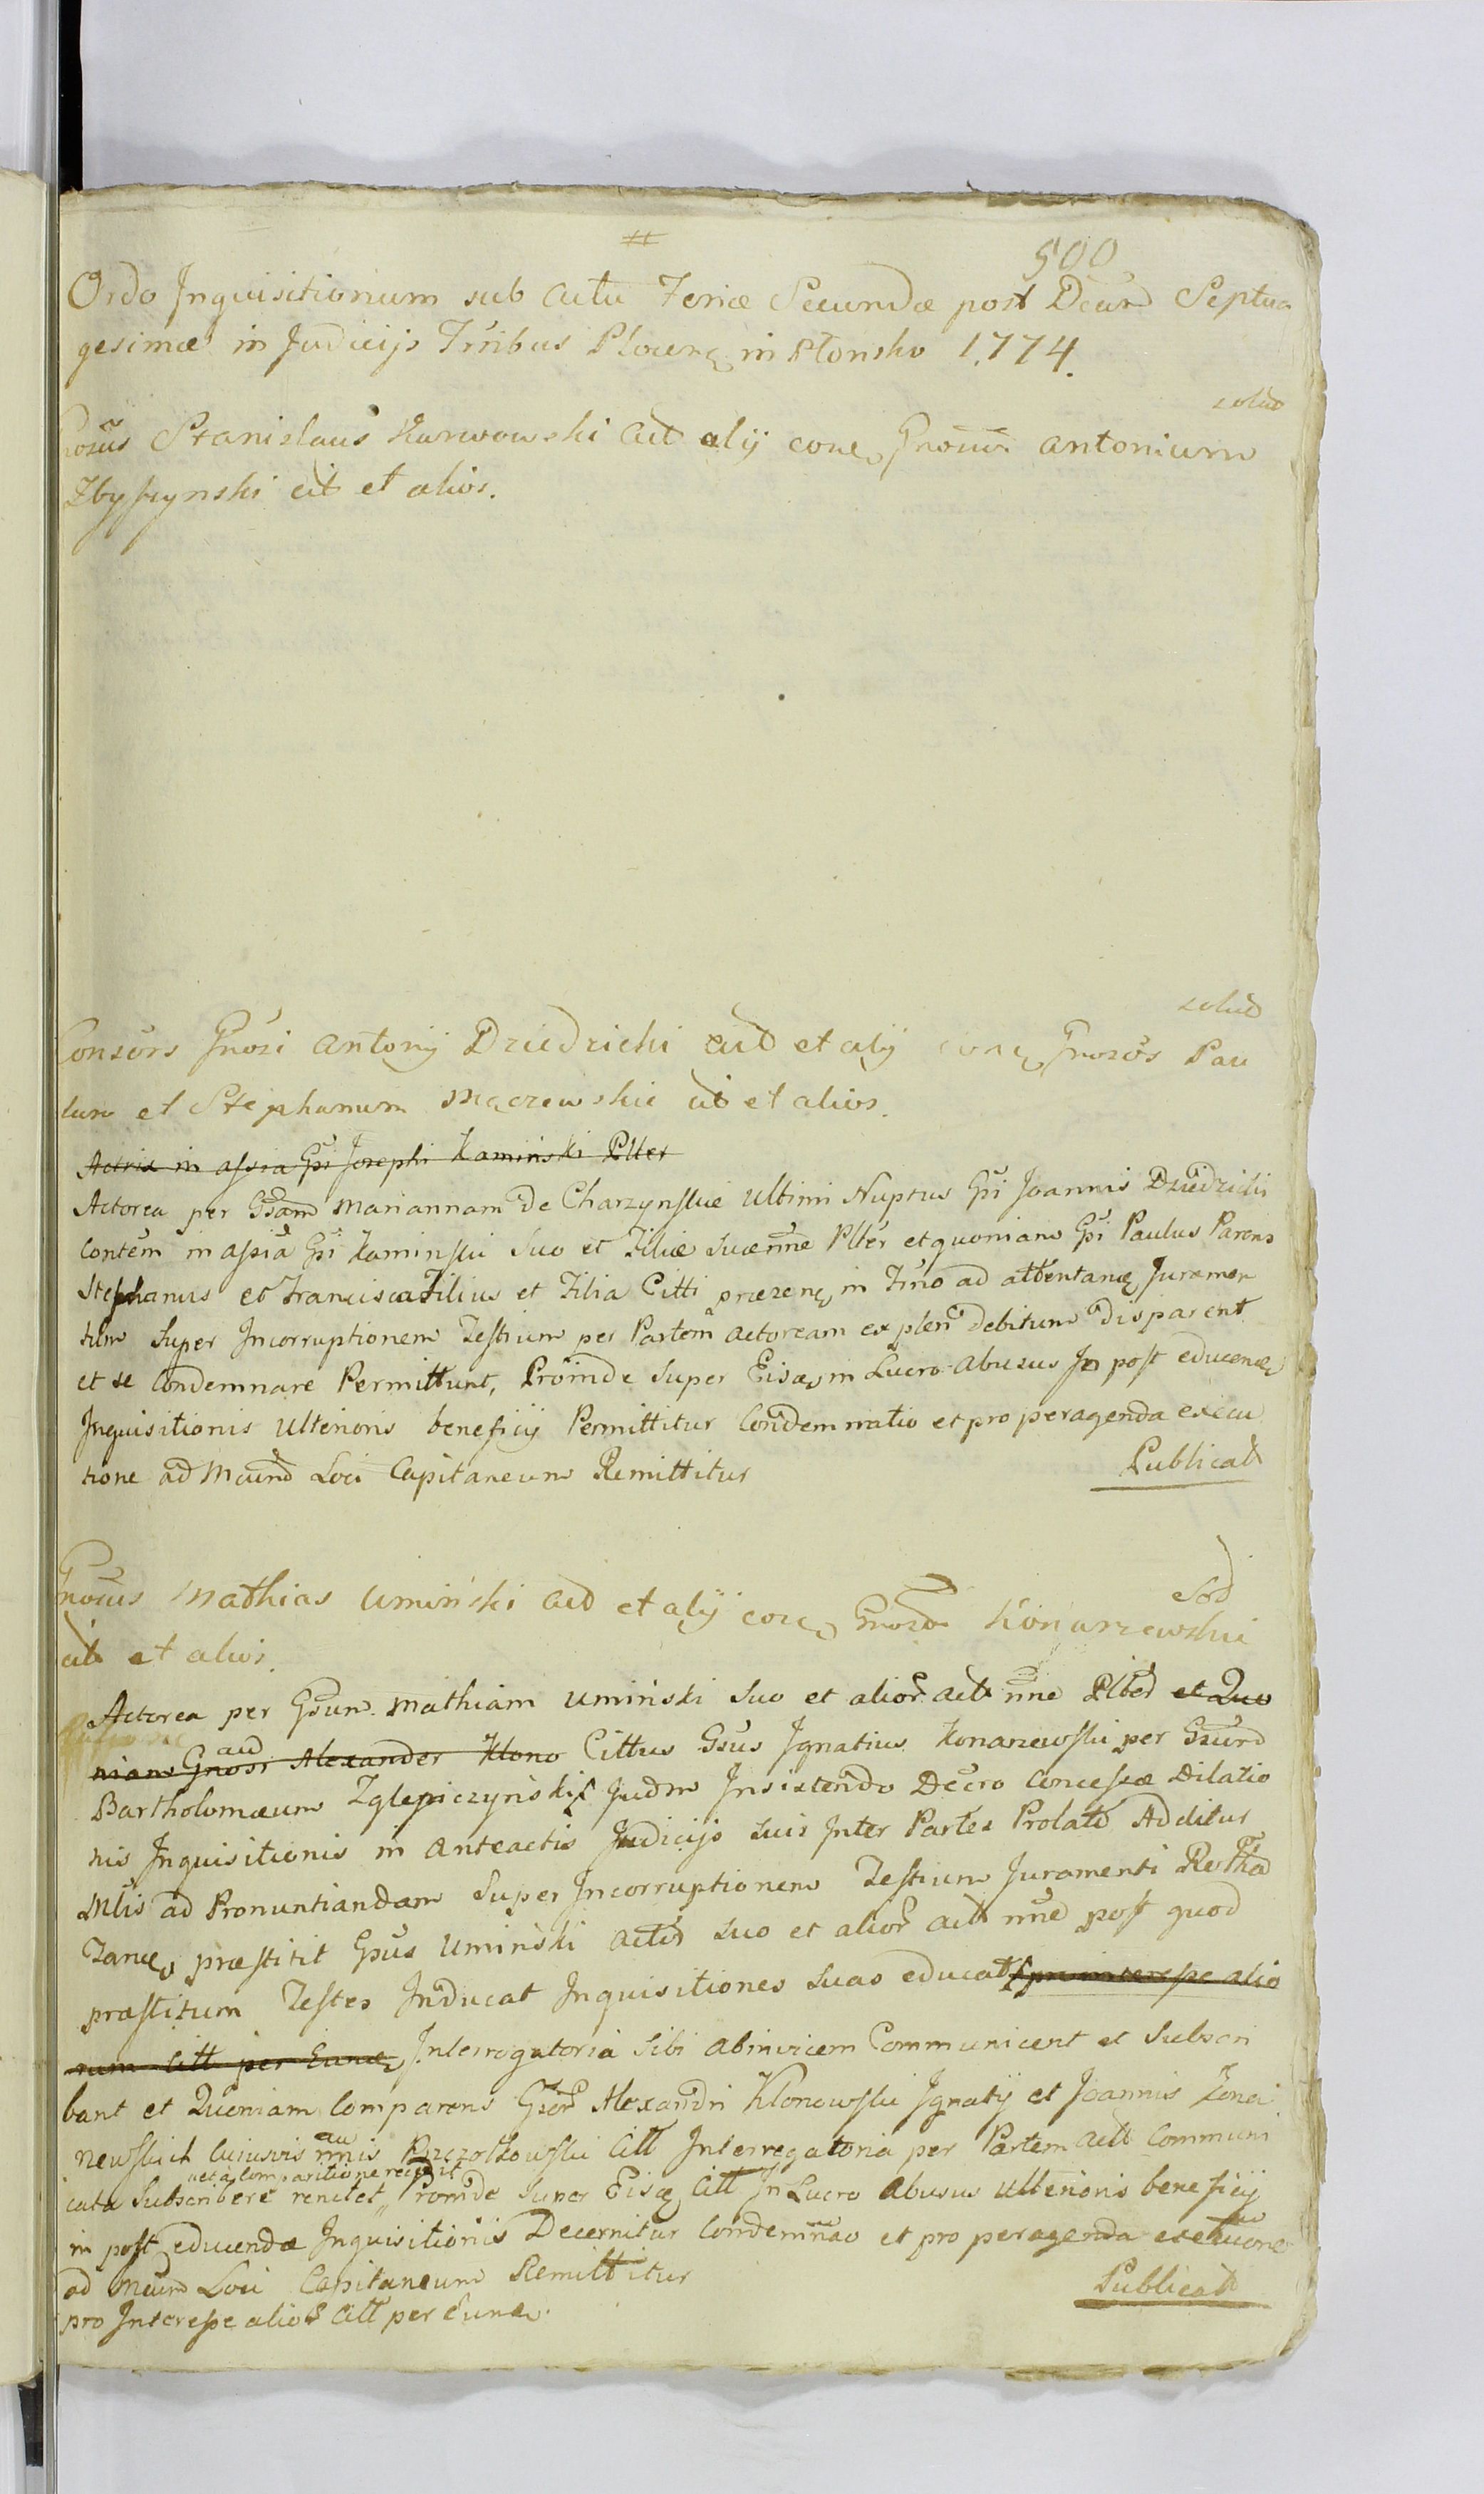 #
500
Ordo Inquisitionum sub actu Feriæ Secundæ post Dcam Septua
gesimæ in Judicijs Trribus Plocen in Płonsko 1774.
solut
Gnosus Stanislaus Karwowski Act alij con Gnosum Antonium
Zbyszynski cit et alios.
solut
Consors Gnosi Antonij Dziedzicki Act et alij con Gnosos Pau
lum et Stephanum Mączewskie cit et alios.
Actrix in assia Gsi Josephi Kamiński Plter
Actorea per Gsam Mariannam de Charzynskie Ultimi Nuptus Gsi Joannis Dziedzicki
Contem in assia Gsi Kaminski Suo et Filiæ Suæ nne Plter et quoniam Gsi Paulus Parens
Stephanus et Francisca Filius et Filia Citti præzen in Tmo ad attentan Juramen
tum Super Incorruptionem Testium per Partem Actoream explen debitum disparent
et se Condemnare Permittunt, Proinde Super Eisd in Lucro Abusus In post educendæ
Inquisitionis Ulterioris beneficij Permittitur Condemnatio et pro peragenda execu
tione ad Mcund Loci Capitaneum Remittitur
Publicat
Gnosus Mathias Umiński Act et alij con Gnosos Konarzewskie
Sod
cit et alios.
Actorea per Gsum Mathiam Umiński Suo et alior Act nne Plter et Quo
niam Gnosi Alexander Klono Cittus Gsus Ignatius Konarzewski per Gsum
Bartholomæum Zglepiczyński Judm Insistendo Decro Concessæ Dilatio
nis Inquisitionis in Anteactis Judicijs Suis Inter Partes Prolato Additus
Mlis ad Pronuntiandam Super Incorruptionem Testium Juramenti Rotha
præstitit Gsus Umiński Act Suo et alior Act nne post quod
præstitum Testes Inducat Inquisitiones Suas educat pro interesse alio
rum Citt per Eund Interrogatoria Sibi abinvicem Communicent et Subscri
bant et Quoniam Comparens Gsor Alexandri Klonowski Ignatij et Joannis Kona
newskich Cuiusvis mnis Pszczołkowski Citt Interrogatoria per Partem Act Communi
et a Comparitione recessit
cata Subscribere renitet Proinde Super Eisd Citt In Lucro Abusus Ulterioris beneficij
in post educendæ Inquisitionis Decernitur Condemnao et pro peragenda execuone
ad Mcund Loci Capitaneum Remittitur
Publicat
pro Interesse alior Citt per Eund